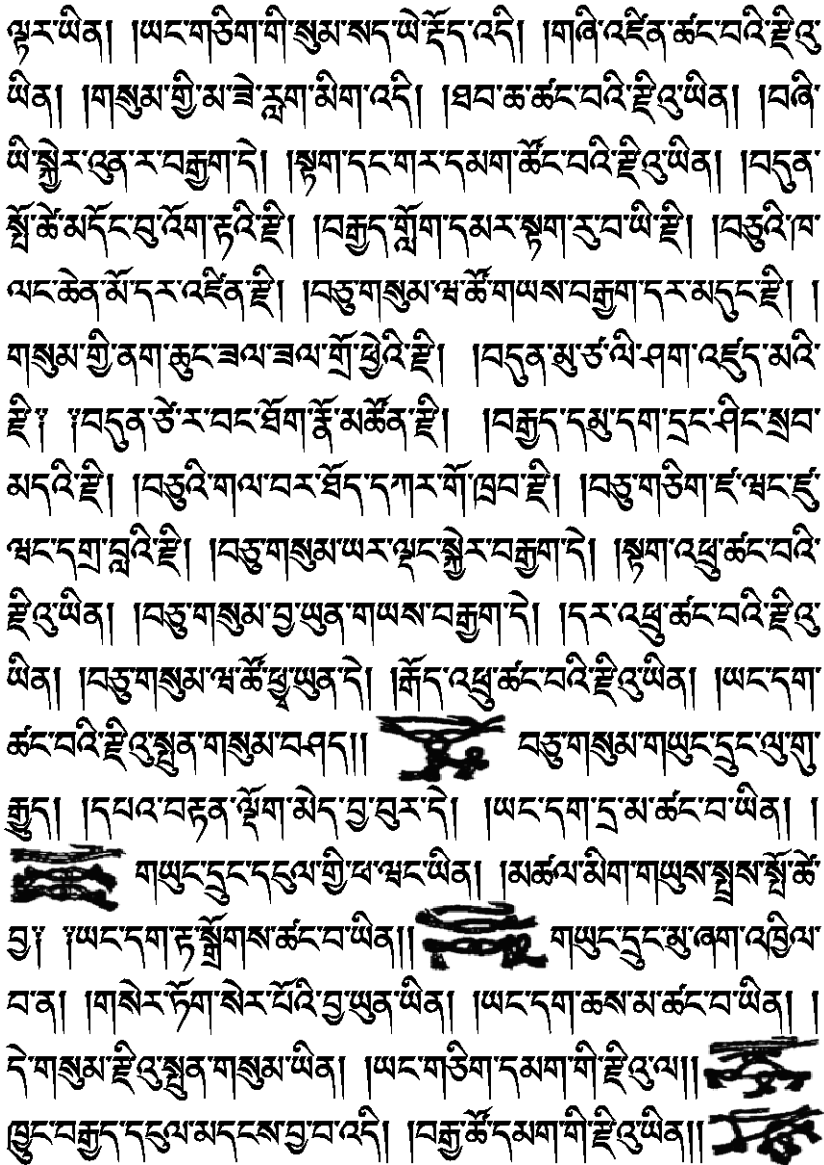 ལྟར་ཡིན། །ཡང་གཅིག་གི་སུམ་སད་ཡེ་རྡོད་འདི། །གཞི་འཛིན་ཚང་བའི་རྫིའུ་
ཡིན། །གསུམ་གྱི་མ་ཟེ་རླག་མིག་འདི། །ཐབ་ཆ་ཚང་བའི་རྫིའུ་ཡིན། །བཞི་
ཡི་སྐྱེར་འུན་ར་བརྒྱག་དེ། །སྟག་དང་གར་དམག་ཚོང་བའི་རྫིའུ་ཡིན། །བདུན་
སྤོ་ཚེ་མདོང་བུ་འོག་རྟའི་རྫི། །བརྒྱད་གློག་དམར་སྟག་རུ་བ་ཡི་རྫི། །བཅུའི་ཁ་
ལང་ཆེན་མོ་དར་འཛིན་རྫི། །བཅུ་གསུམ་ཝ་ཚོ་གཡས་བརྒྱག་དར་མདུང་རྫི། །
གསུམ་གྱི་ནག་ཆུང་ཟལ་ཟལ་གྲོ་ཕྱེའི་རྫི། །བདུན་མུ་ཙ་ལི་ཤག་འཛུད་མའི་
རྫི༔ ༔བདུན་ཙེ་ར་བང་ཐོག་རྣོ་མཚོན་རྫི། །བརྒྱད་དམུ་དག་དྲང་ཤིང་སྲབ་
མདའི་རྫི། །བཅུའི་གལ་བར་ཐོད་དཀར་གོ་ཁྲབ་རྫི། །བཅུ་གཅིག་ཛ་ཝང་ཛུ་
ཝང་དགྲ་བླའི་རྫི། །བཅུ་གསུམ་ཡར་ལྡང་སྐྱེར་བརྒྱག་དེ། །སྟག་འཕྲུ་ཚང་བའི་
རྫིའུ་ཡིན། །བཅུ་གསུམ་བྱ་ཡུན་གཡས་བརྒྱག་དེ། །དར་འཕྲུ་ཚང་བའི་རྫིའུ་
ཡིན། །བཅུ་གསུམ་ཝ་ཚོ་ཕྱྭ་ཡུན་དེ། །རྒོད་འཕྲུ་ཚང་བའི་རྫིའུ་ཡིན། །ཡང་དག་
ཚང་བའི་རྫིའུ་སྤུན་གསུམ་བཤད།། བཅུ་གསུམ་གཡུང་དྲུང་ལུ་གུ་
རྒྱུད། །དཔའ་བརྟན་ལྡོག་མེད་བྱ་བུར་དེ། །ཡང་དག་དྲ་མ་ཚང་བ་ཡིན། །
གཡུང་དྲུང་དངུལ་གྱི་ཕ་ཝང་ཡིན། །མཚལ་མིག་གཡུས་སྤྲས་སྤོ་ཚེ་
བྱ༔ ༔ཡང་དག་རྟ་སྒྲོགས་ཚང་བ་ཡིན།། གཡུང་དྲུང་མུ་ཞག་འཁྱིལ་
བ་ན། །གསེར་ཏོག་སེར་པོའི་བྱ་ཡུན་ཡིན། །ཡང་དག་ཆས་མ་ཚང་བ་ཡིན། །
དེ་གསུམ་རྫིའུ་སྤུན་གསུམ་ཡིན། །ཡང་གཅིག་དམག་གི་རྫིའུ་ལ།།
ཁྱུང་བརྒྱད་དངུལ་མདངས་བྱ་བ་འདི། །བརྒྱ་ཚོ་དམག་གི་རྫིའུ་ཡིན།།